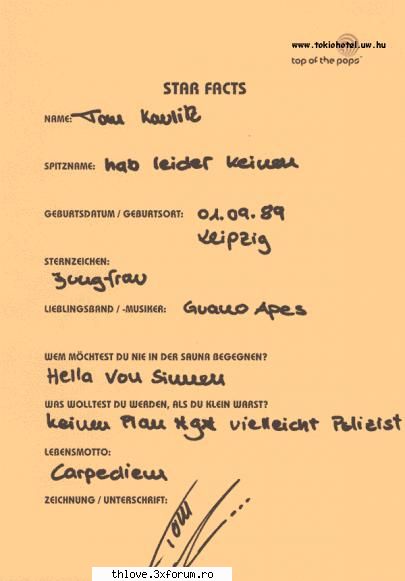 www.tokiohotel.uw.hu
top of the pops™
STAR FACTS
NAME: Tom Kaulitz
SPITZNAME: hab leider keinen
GEBURTSDATUM / GEBURTSORT: 01.09.89
Leipzig
STERNZEICHEN:
Jungfrau
LIEBLINGSBAND / -MUSIKER: Guano Apes
WEM MÖCHTEST DU NIE IN DER SAUNA BEGEGNEN?
Hella von Sinnen
WAS WOLLTEST DU WERDEN, ALS DU KLEIN WARST?
keinen Plan vielleicht Polizist
LEBENSMOTTO:
Carpediem
ZEICHNUNG / UNTERSCHRIFT:
Tom
thlove.3xforum.ro